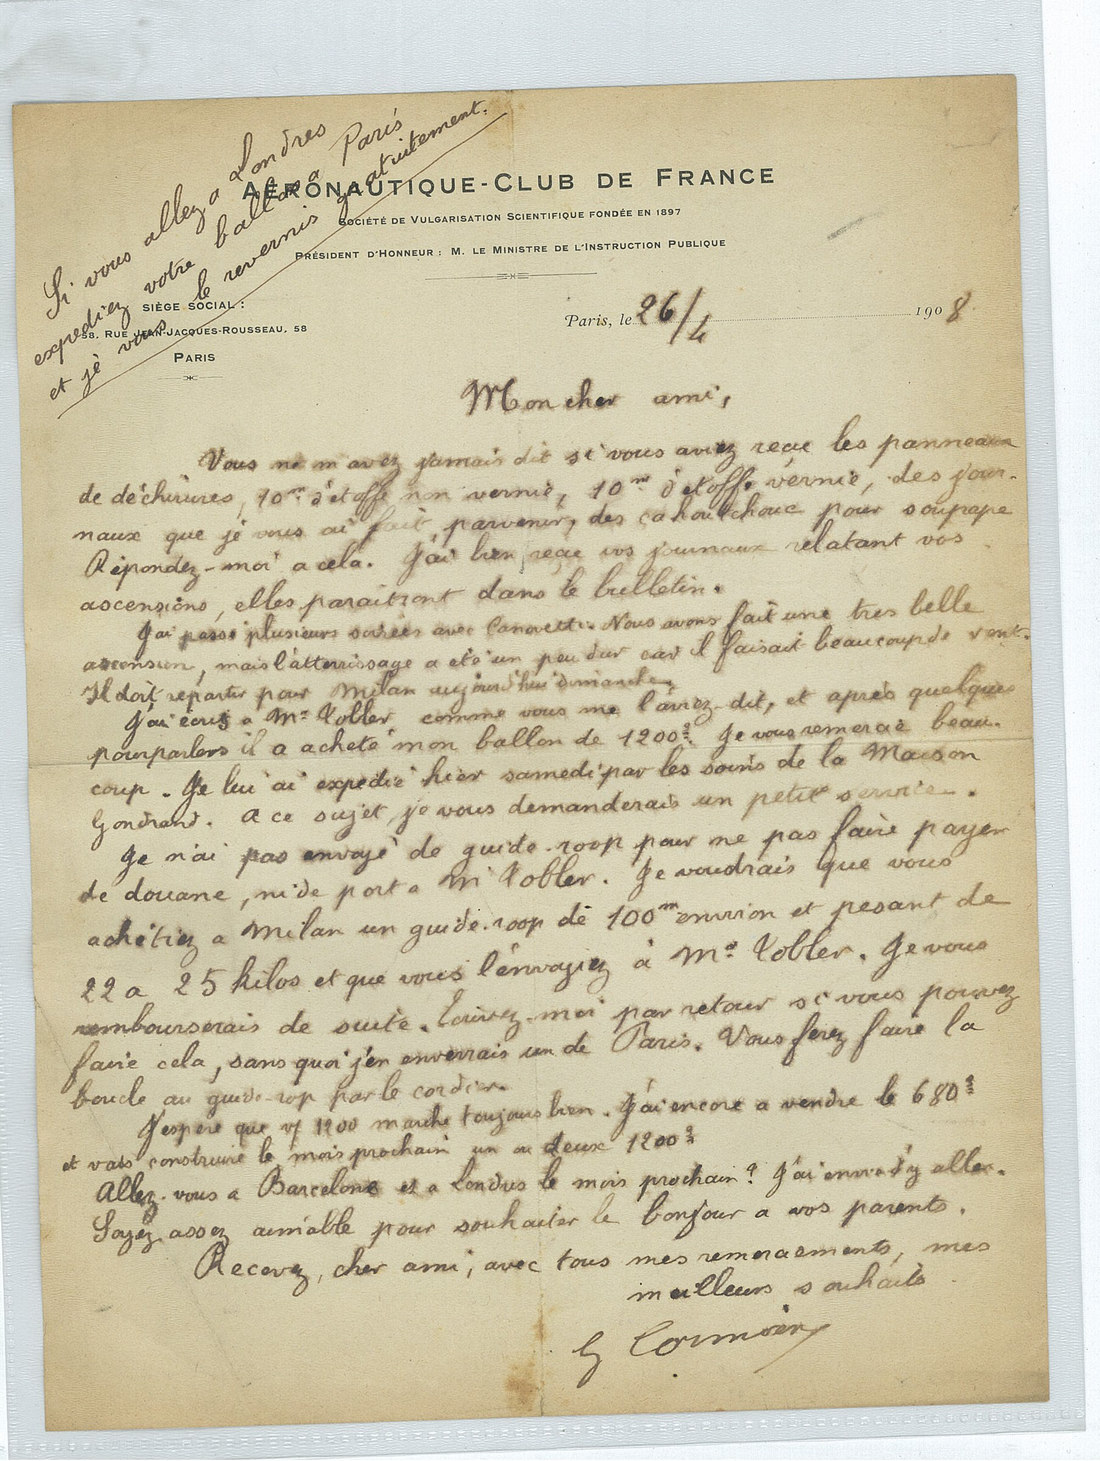 Si vous allez a Londres
expediez votre ballon a Paris
et je vous le revernis gratuitement.
AÉRONAUTIQUE-CLUB DE FRANCE
SOCIÉTÉ DE VULGARISATION SCIENTIFIQUE FONDÉE EN 1897
PRÉSIDENT D'HONNEUR : M. LE MINISTRE DE L'INSTRUCTION PUBLIQUE
SIÈGE SOCIAL :
58, RUE JEAN-JACQUES-ROUSSEAU, 58
PARIS
Paris, le 26/4 1908
Mon cher ami,
Vous ne m'avez jamais dit si vous aviez reçu les panneaux
de déchirures, 10m d'étoffe non vernie, 10m d'étoffe vernie, des jour-
naux que je vous ai fait parvenir, des cahoutchouc pour soupape
Répondez-moi a cela. J'ai bien reçu vos journaux relatant vos
ascensions, elles paraitront dans le bulletin.
J'ai passé plusieurs soirées avec Canovetti. Nous avons fait une tres belle
ascension, mais l'atterrissage a eté un peu dur car il faisait beaucoup de vent.
Il doit repartir pour Milan aujourd'hui dimanche.
J'ai ecris a Mr Tobler comme vous me l'aviez dit, et après quelques
pourparlers il a acheté mon ballon de 1200 3. Je vous remercie beau-
coup. Je lui ai expedié hier samedi par les soins de la Maison
Gondrand. A ce sujet, je vous demanderais un petit service.
Je n'ai pas envoyé de guide-roop pour ne pas faire payer
de douane, ni de port a Mr Tobler. Je voudrais que vous
achetiez a Milan un guide-roop de 100m environ et pesant de
22 a 25 kilos et que vous l'envoyiez à Mr Tobler. Je vous
rembourserais de suite. Ecrivez-moi par retour si vous pouvez
faire cela, sans quoi j'en enverrais un de Paris. Vous ferez faire la
boucle au guide-rop par le cordier.
J'espere que vf 1200 marche toujours bien. J'ai encore a vendre le 680 3
et vais construire le mois prochain un ou deux 1200 3
Allez-vous a Barcelone et a Londres le mois prochain? J'ai envie d'y aller.
Soyez assez aimable pour souhaiter le bonjour a vos parents.
Recevez, cher ami, avec tous mes remerciements, mes
meilleurs souhaits
G Cormier